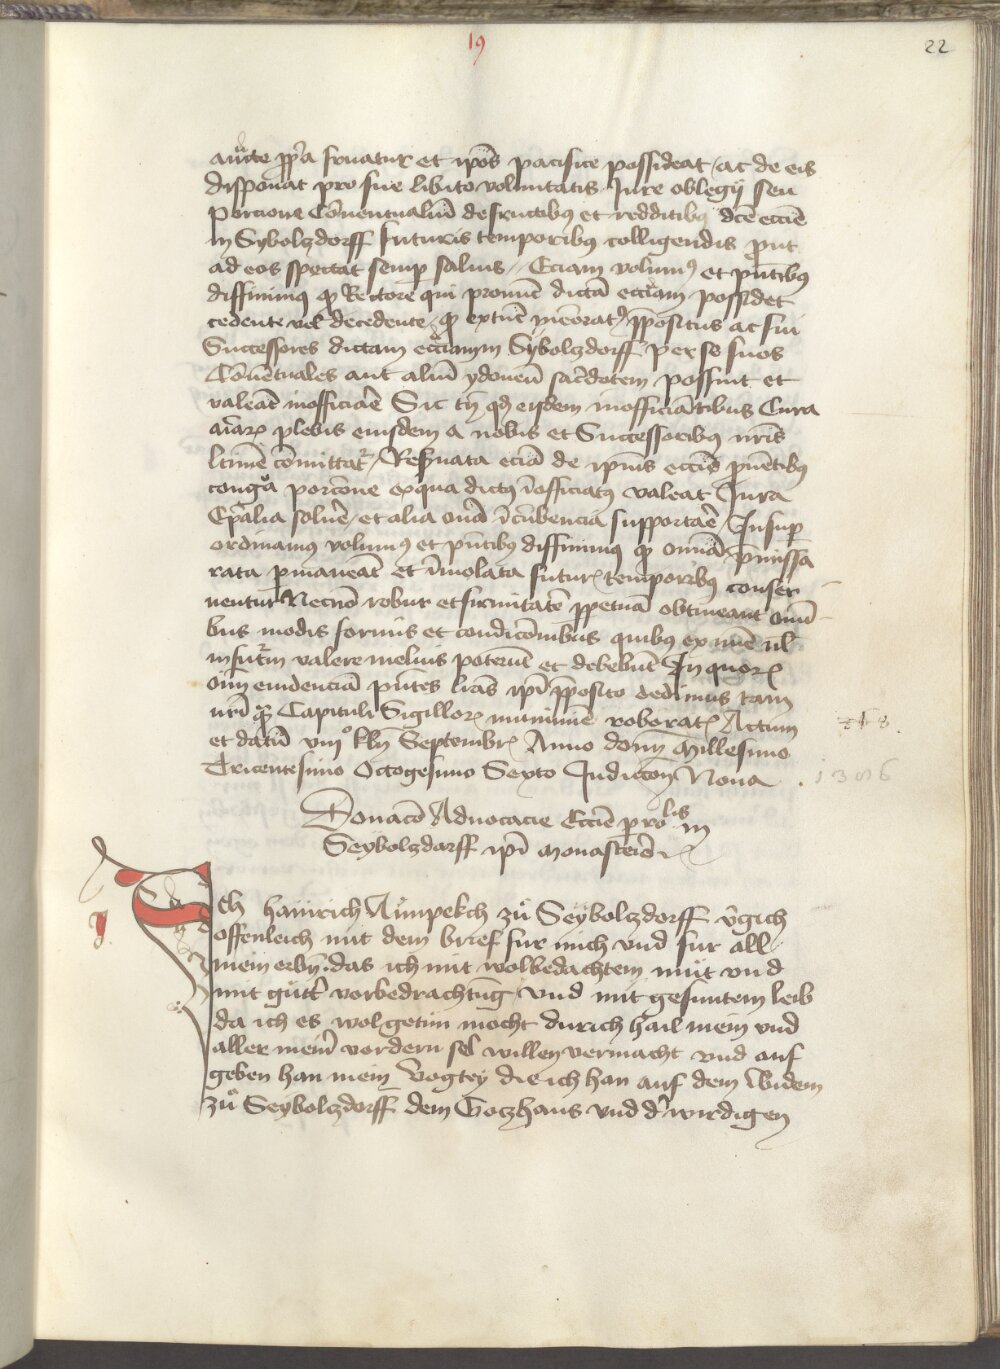 19
22
auc̄te pp̄a fruatur et ip̄os pacifice possideat ac de eis
disponat pro sue libito voluntatis Jure oblegij seu
Porcione Cōuentualiū de fructibꝯ et redditibꝯ dc̄e ecc̄ie
in Sybolczdorff futuris temporibꝯ colligendis put
ad eos spectat semp saluis // Eciam volumꝯ et pn̄tibꝯ
diffinimꝯ qꝫ Rectore qui pronūc dictā ecc̄iam possidet
cedente vel decedente qꝫ extūc mēoratꝯ pp̄ositus ac sui
Successores dictam ecc̄iam in Sybolczdorff per se suos
Cōuētuales aut aliū ydoneū sac̄dotem possint et
valeāt inofficiare Sic tn̄ qd eisdem inofficiātibus Cura
aīarꝝ plebis eiusdem a nobis et Successoribꝯ nr̄is
ltīme cōmittatꝛ Reseruata eciā de ip̄ius ecc̄ie puētibꝯ
congͣ porcōne ex qua dictꝯ īofficiatꝯ valeat Jura
Ep̄alia soluē et alia onā īcūbencia supportaē Insup
ordinamꝯ volumꝯ et pn̄tibꝯ diffinimꝯ qꝫ omīa pmissa
rata pmaneāt et īuiolata futurꝭ temporibꝯ conser
uentur Necnō robur et firmitatē ppetuā obtineant omī
bus modis formis et condicōnibus quibus ex nūc ul̄
in futꝝ valere melius poterūt et debebūt In quorꝝ
oīm euidenciā pn̄tes lrās ip̄i pp̄osito dedimus tam
nr̄i qͣꝫ Capituli Sigillorꝝ munimīe roboratꝭ Actum
et datū viiij° kln̄ Septembrꝭ Anno domī Millesimo
Tricentesimo Octogesimo Sexto Indiccōn Nona
1386
Donacō Aduocacie Ecc̄ie pro​lis in
Seybolczdarff ip̄i monasterio ꝛc
J
Jch hainrich Aͤmpekch zuͦ Seybolczdorff v̄gich
offenleich mit dem brief fur mich vnd fur all
mein erbn̄ das ich mit wolbedachtem muͤt vnd
mit guͤtt̄ vorbedrachtūg vnd mit gesuntem leib
da ich es wol getun mocht durich hail mein vnd
aller mein̄ vordern sel willen vermacht vnd auf
geben han mein Vogtey die ich han auf dem Widem
zuͦ Seybolczdorff dem Goczhaus vnd d̄ wirdigen